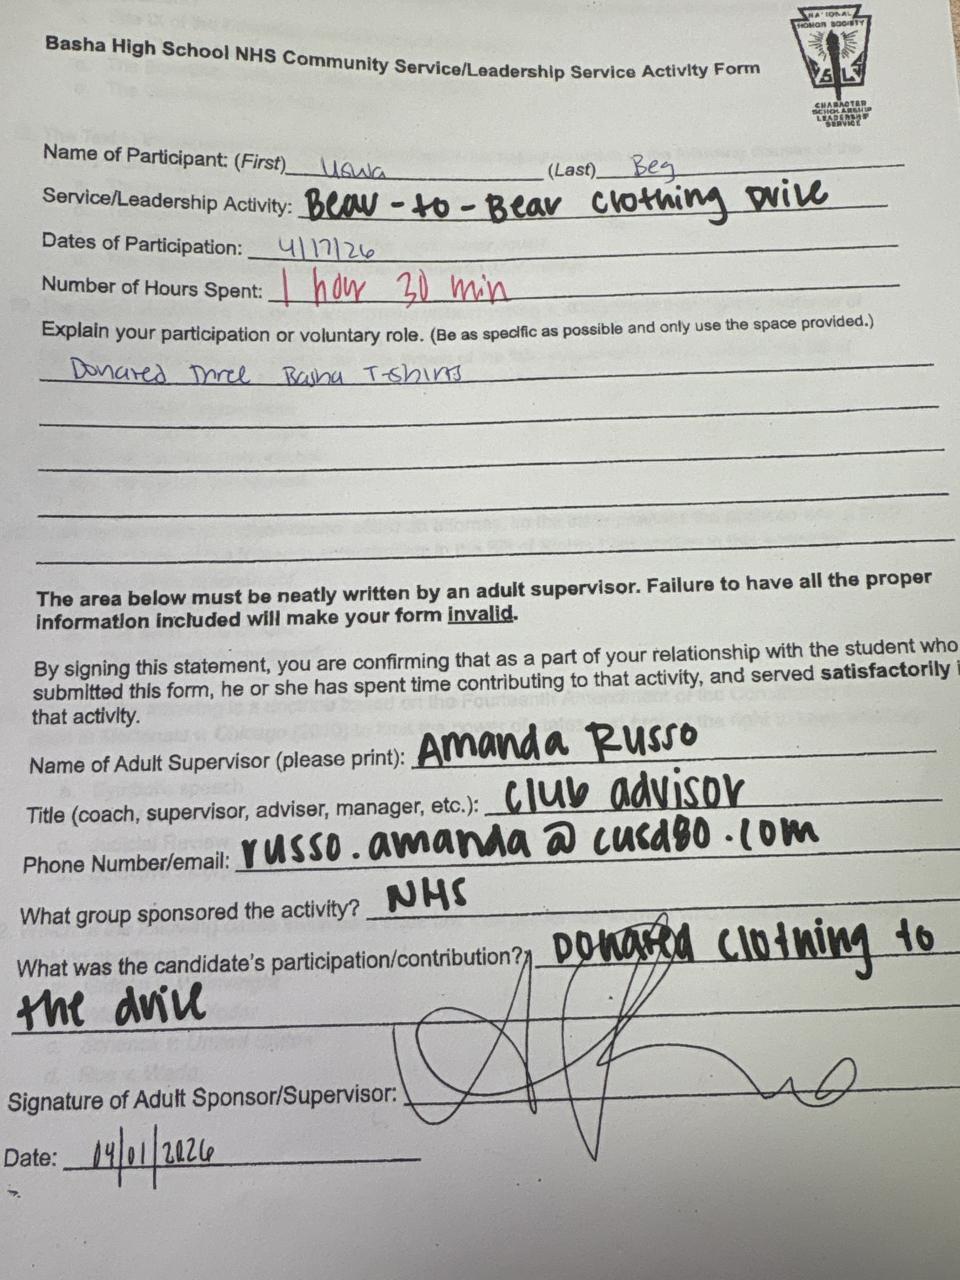 NATIONAL
HONOR SOCIETY
S L
CHARACTER
SCHOLARSHIP
LEADERSHIP
SERVICE
Basha High School NHS Community Service/Leadership Service Activity Form
Name of Participant: (First) Uswa (Last) Beg
Service/Leadership Activity: Bear-to-Bear clothing Drive
Dates of Participation: 4/17/26
Number of Hours Spent: 1 hour 30 min
Explain your participation or voluntary role. (Be as specific as possible and only use the space provided.)
Donated Three Basha T-shirts
The area below must be neatly written by an adult supervisor. Failure to have all the proper
information included will make your form invalid.
By signing this statement, you are confirming that as a part of your relationship with the student who
submitted this form, he or she has spent time contributing to that activity, and served satisfactorily i
that activity.
Name of Adult Supervisor (please print): Amanda Russo
Title (coach, supervisor, adviser, manager, etc.): club advisor
Phone Number/email: russo.amanda@cusd80.com
What group sponsored the activity? NHS
What was the candidate's participation/contribution? Donated clothing to
the drive
Signature of Adult Sponsor/Supervisor:
Date: 04/01/2026